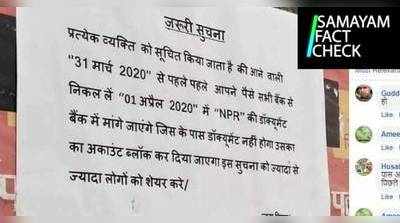 SAMAYAM
FACT
CHECK
जरूरी सुचना
प्रत्येक व्यक्ति को सूचित किया जाता है की आने वाली
"31 मार्च 2020" से पहले पहले आपने पैसे सभी बैंक से
निकल लें "01 अप्रैल 2020" में "NPR" की डॉक्यूमेंट
बैंक में मांगे जाएंगे जिस के पास डॉक्यूमेंट नहीं होगा उसका
का अकाउंट ब्लॉक कर दिया जाएगा इस सुचना को ज्यादा से
ज्यादा लोगों को शेयर करे/
Godd
हो
Like
Amee
Like
Husai
पास अ
पिछले
Like